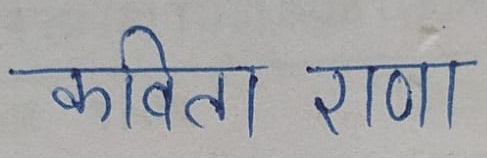 कविता राणा